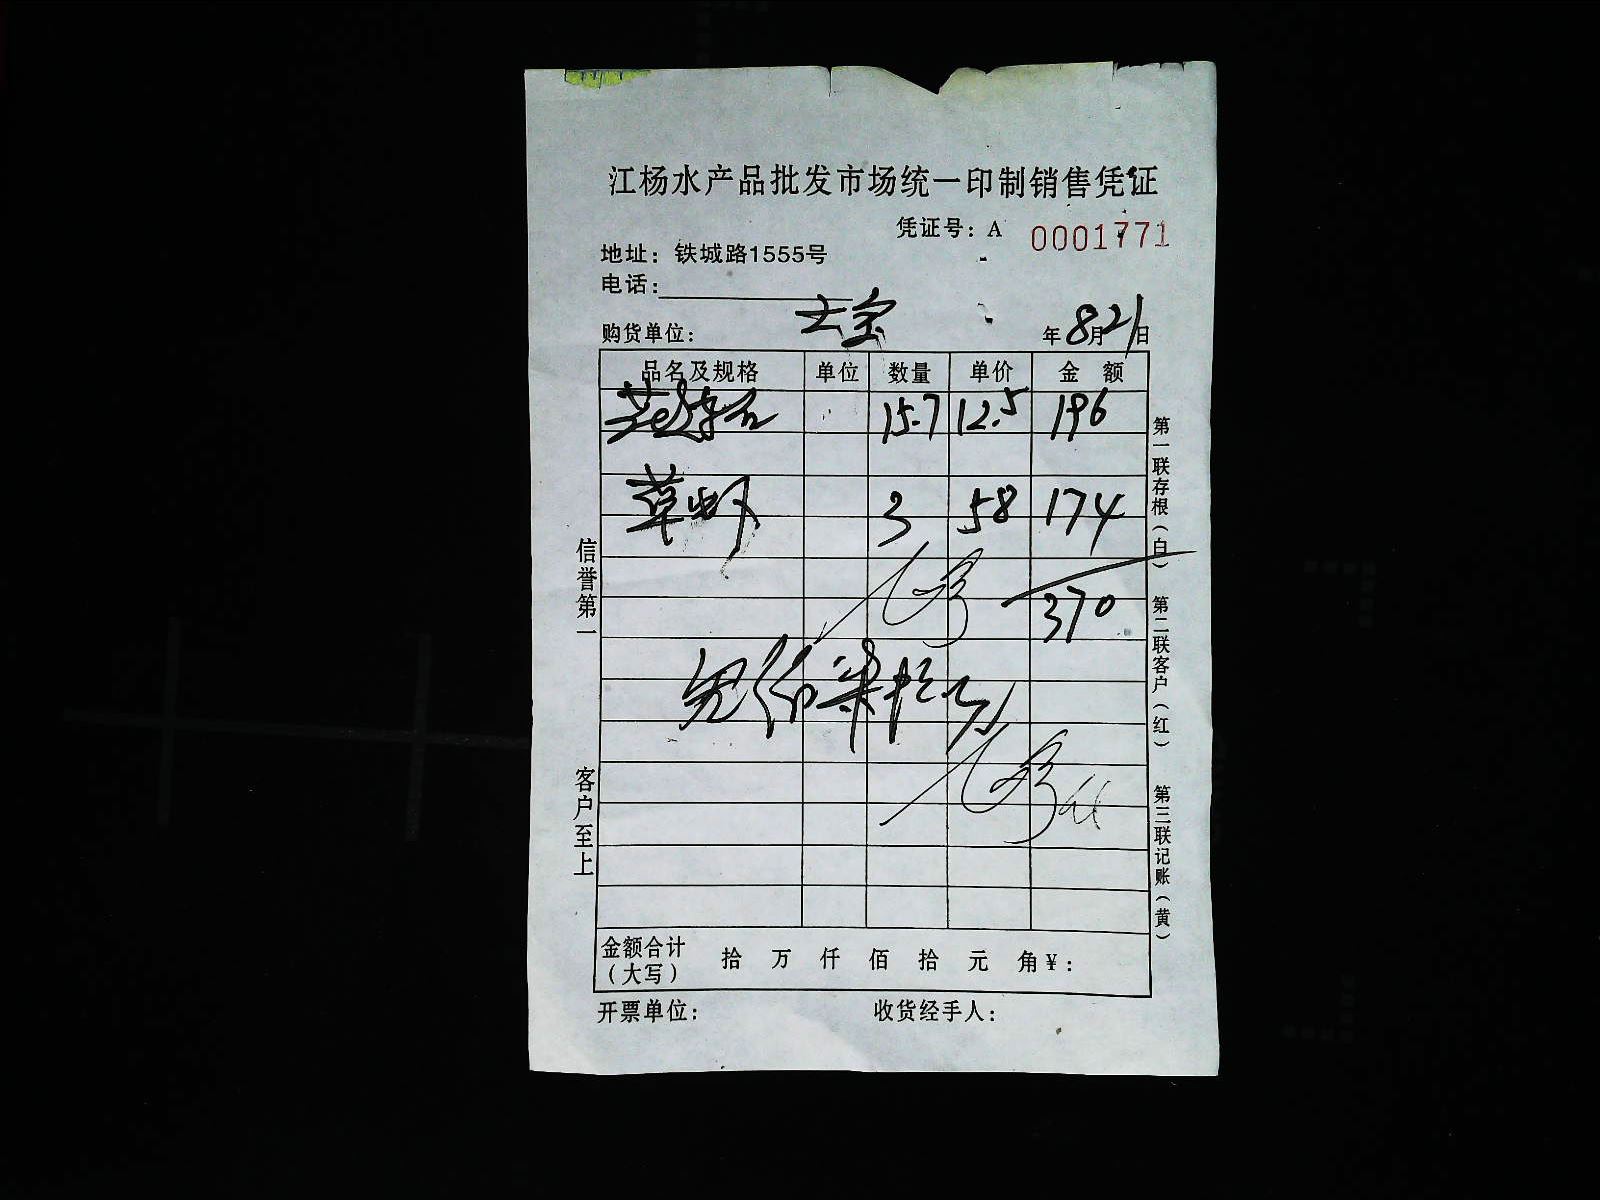 江杨水产品批发市场统一印制销售凭证
凭证号：A 0001771
地址：铁城路1555号
电话：
购货单位： 大宝 年8月21日
品名及规格 单位 数量 单价 金额
15.7 12.5 196
草虾 3 58 174
370
叁佰柒拾元
金额合计（大写） 拾 万 仟 佰 拾 元 角 ¥：
开票单位： 收货经手人：
信誉第一 客户至上
第一联存根（白） 第二联客户（红） 第三联记账（黄）